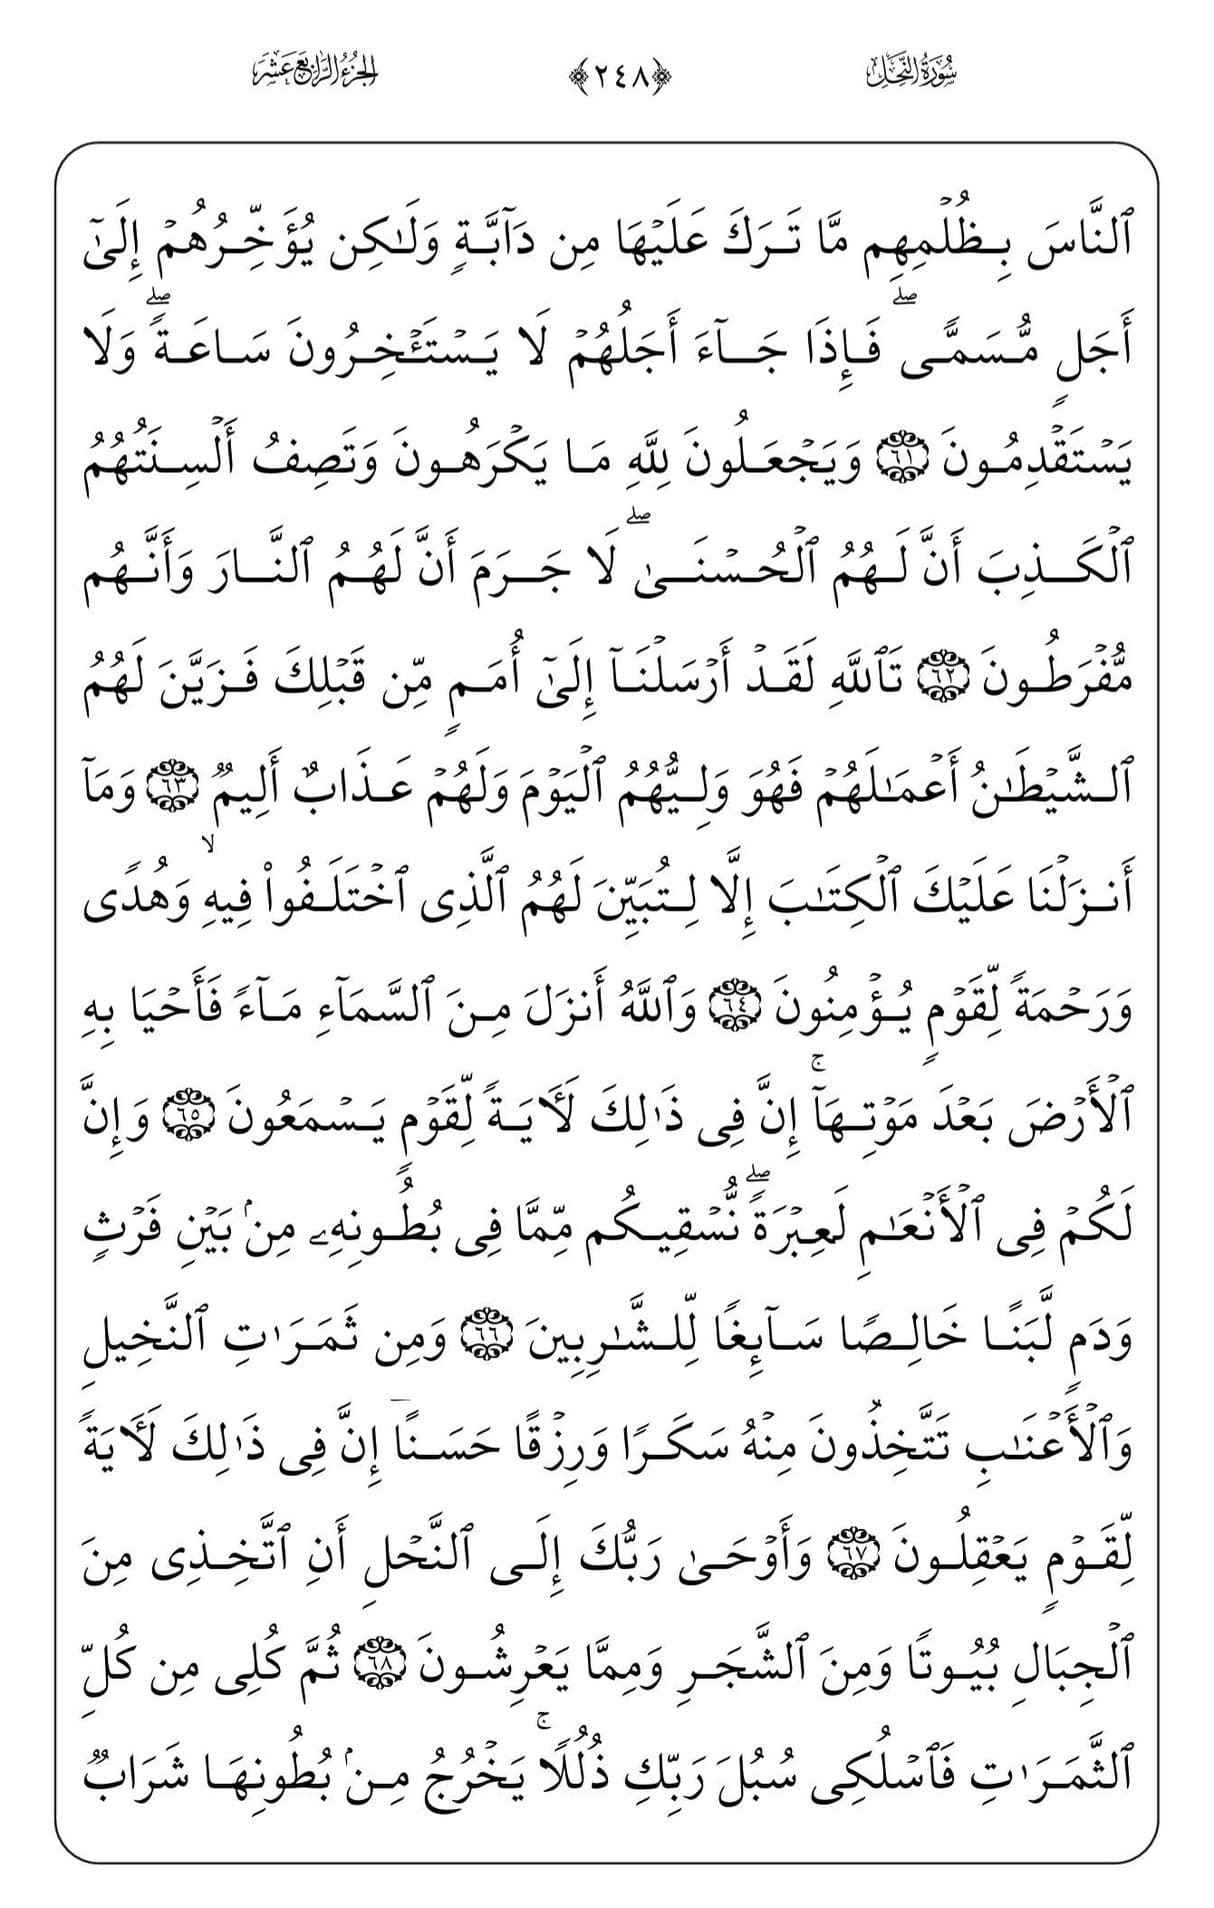 سُورَةُ النَّحْلِ ﴿٢٤٨﴾ الجُزْءُ الرَّابِعَ عَشَرَ
ٱلنَّاسَ بِظُلۡمِهِم مَّا تَرَكَ عَلَيۡهَا مِن دَآبَّةٖ وَلَٰكِن يُؤَخِّرُهُمۡ إِلَىٰٓ
أَجَلٖ مُّسَمّٗىۖ فَإِذَا جَآءَ أَجَلُهُمۡ لَا يَسۡتَـٔۡخِرُونَ سَاعَةٗۖ وَلَا
يَسۡتَقۡدِمُونَ ٦١ وَيَجۡعَلُونَ لِلَّهِ مَا يَكۡرَهُونَ وَتَصِفُ أَلۡسِنَتُهُمُ
ٱلۡكَذِبَ أَنَّ لَهُمُ ٱلۡحُسۡنَىٰۖ لَا جَرَمَ أَنَّ لَهُمُ ٱلنَّارَ وَأَنَّهُم
مُّفۡرَطُونَ ٦٢ تَٱللَّهِ لَقَدۡ أَرۡسَلۡنَآ إِلَىٰٓ أُمَمٖ مِّن قَبۡلِكَ فَزَيَّنَ لَهُمُ
ٱلشَّيۡطَٰنُ أَعۡمَٰلَهُمۡ فَهُوَ وَلِيُّهُمُ ٱلۡيَوۡمَ وَلَهُمۡ عَذَابٌ أَلِيمٞ ٦٣ وَمَآ
أَنزَلۡنَا عَلَيۡكَ ٱلۡكِتَٰبَ إِلَّا لِتُبَيِّنَ لَهُمُ ٱلَّذِى ٱخۡتَلَفُواْ فِيهِۙ وَهُدٗى
وَرَحۡمَةٗ لِّقَوۡمٖ يُؤۡمِنُونَ ٦٤ وَٱللَّهُ أَنزَلَ مِنَ ٱلسَّمَآءِ مَآءٗ فَأَحۡيَا بِهِ
ٱلۡأَرۡضَ بَعۡدَ مَوۡتِهَآۚ إِنَّ فِى ذَٰلِكَ لَأٓيَةٗ لِّقَوۡمٖ يَسۡمَعُونَ ٦٥ وَإِنَّ
لَكُمۡ فِى ٱلۡأَنۡعَٰمِ لَعِبۡرَةٗۖ نُّسۡقِيكُم مِّمَّا فِى بُطُونِهِۦ مِنۢ بَيۡنِ فَرۡثٖ
وَدَمٖ لَّبَنًا خَالِصٗا سَآئِغٗا لِّلشَّٰرِبِينَ ٦٦ وَمِن ثَمَرَٰتِ ٱلنَّخِيلِ
وَٱلۡأَعۡنَٰبِ تَتَّخِذُونَ مِنۡهُ سَكَرٗا وَرِزۡقًا حَسَنًاۗ إِنَّ فِى ذَٰلِكَ لَأٓيَةٗ
لِّقَوۡمٖ يَعۡقِلُونَ ٦٧ وَأَوۡحَىٰ رَبُّكَ إِلَى ٱلنَّحۡلِ أَنِ ٱتَّخِذِى مِنَ
ٱلۡجِبَالِ بُيُوتٗا وَمِنَ ٱلشَّجَرِ وَمِمَّا يَعۡرِشُونَ ٦٨ ثُمَّ كُلِى مِن كُلِّ
ٱلثَّمَرَٰتِ فَٱسۡلُكِى سُبُلَ رَبِّكِ ذُلُلٗاۚ يَخۡرُجُ مِنۢ بُطُونِهَا شَرَابٞ